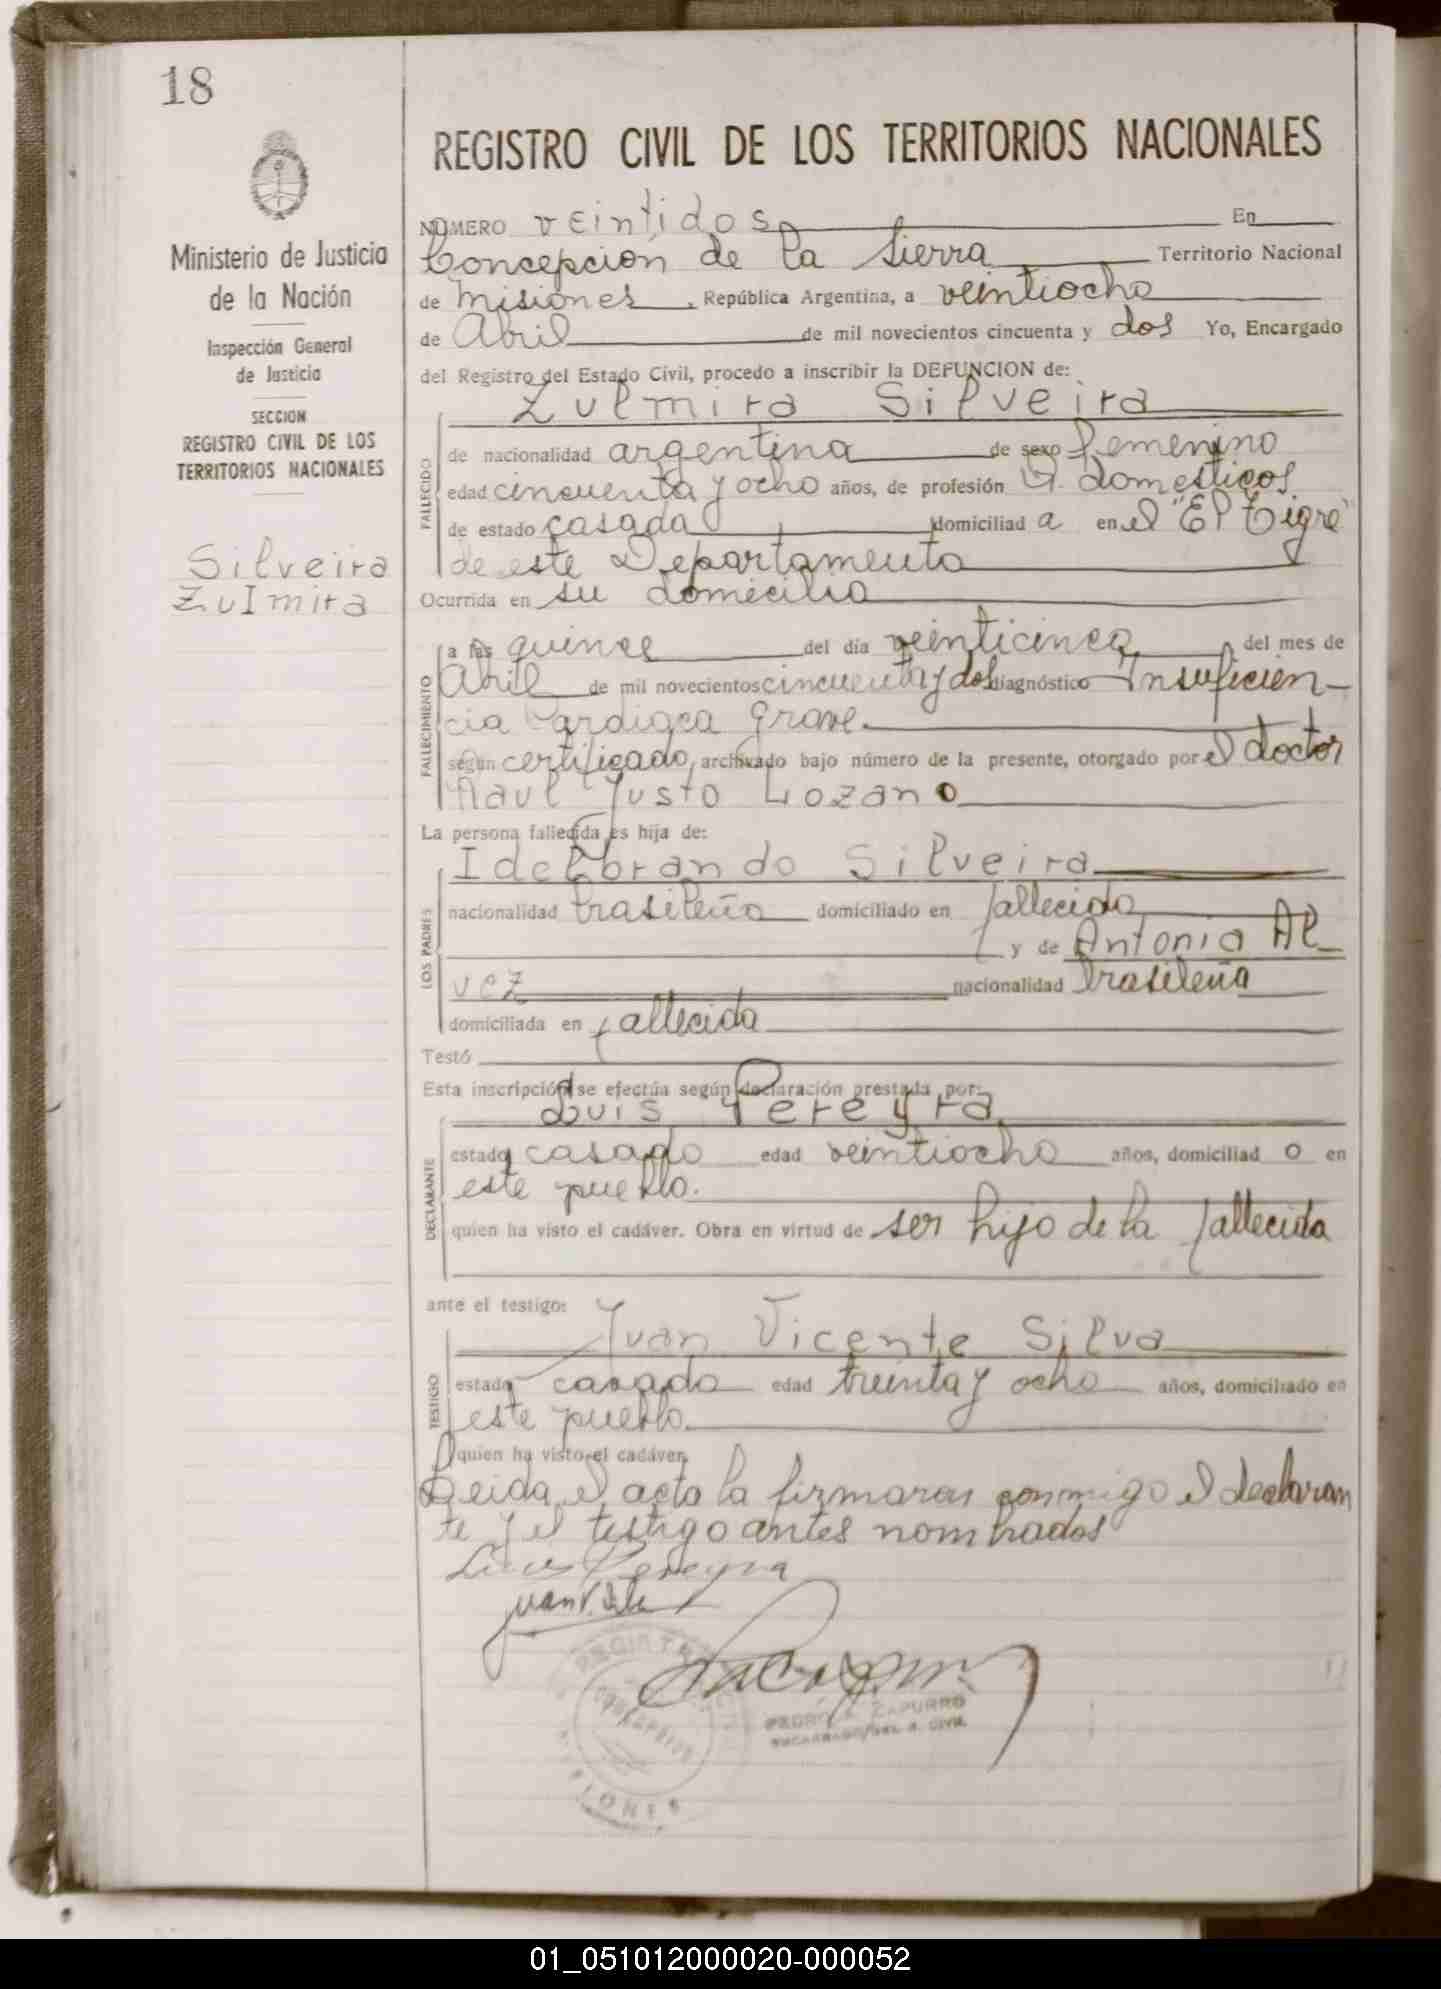 18
REGISTRO CIVIL DE LOS TERRITORIOS NACIONALES
Ministerio de Justicia
de la Nación
Inspección General
de Justicia
SECCION
REGISTRO CIVIL DE LOS
TERRITORIOS NACIONALES
Silveira
Zulmira
NUMERO veintidos En
Concepción de la Sierra Territorio Nacional
de Misiones, República Argentina, a veintiocho
de Abril de mil novecientos cincuenta y dos Yo, Encargado
del Registro del Estado Civil, procedo a inscribir la DEFUNCION de:
Zulmira Silveira
FALLECIDO
de nacionalidad argentina de sexo femenino
edad cincuenta y ocho años, de profesión Q. domesticos
de estado casada domiciliad a en el "El Tigre"
de este Departamento
Ocurrida en su domicilio
FALLECIMIENTO
a las quince del día veinticinco del mes de
Abril de mil novecientos cincuenta y dos diagnóstico Insuficien-
cia Cardiaca grave.
según certificado, archivado bajo número de la presente, otorgado por el doctor
Raul Justo Lozano
La persona fallecida es hija de:
LOS PADRES
Idelbrando Silveira
nacionalidad brasileña domiciliado en fallecido
y de Antonia Al-
vez nacionalidad brasileña
domiciliada en fallecida
Testó
Esta inscripción se efectúa según declaración prestada por:
Luis Pereyra
DECLARANTE
estado casado edad veintiocho años, domiciliad o en
este pueblo.
quien ha visto el cadáver. Obra en virtud de ser hijo de la fallecida
ante el testigo:
Juan Vicente Silva
TESTIGO
estado casado edad treinta y ocho años, domiciliado en
este pueblo.
quien ha visto el cadáver.
Leida el acta la firmaron conmigo el declaran
te y el testigo antes nombrados
Luis Pereyra
Juan V. Silva
REGISTRO
CONCEPCION
MISIONES
PEDRO A. CAPURRO
ENCARGADO DEL R. CIVIL
01_051012000020-000052